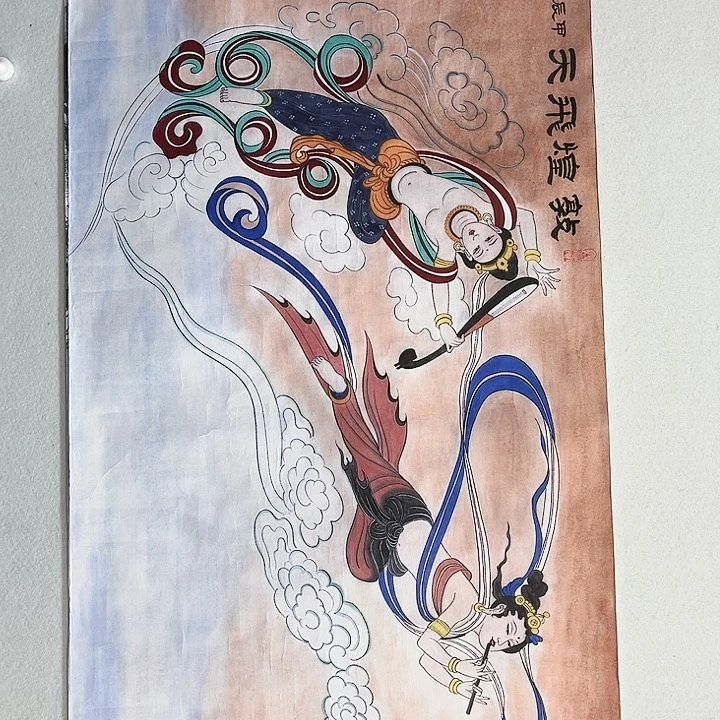 敦煌飛天
甲辰